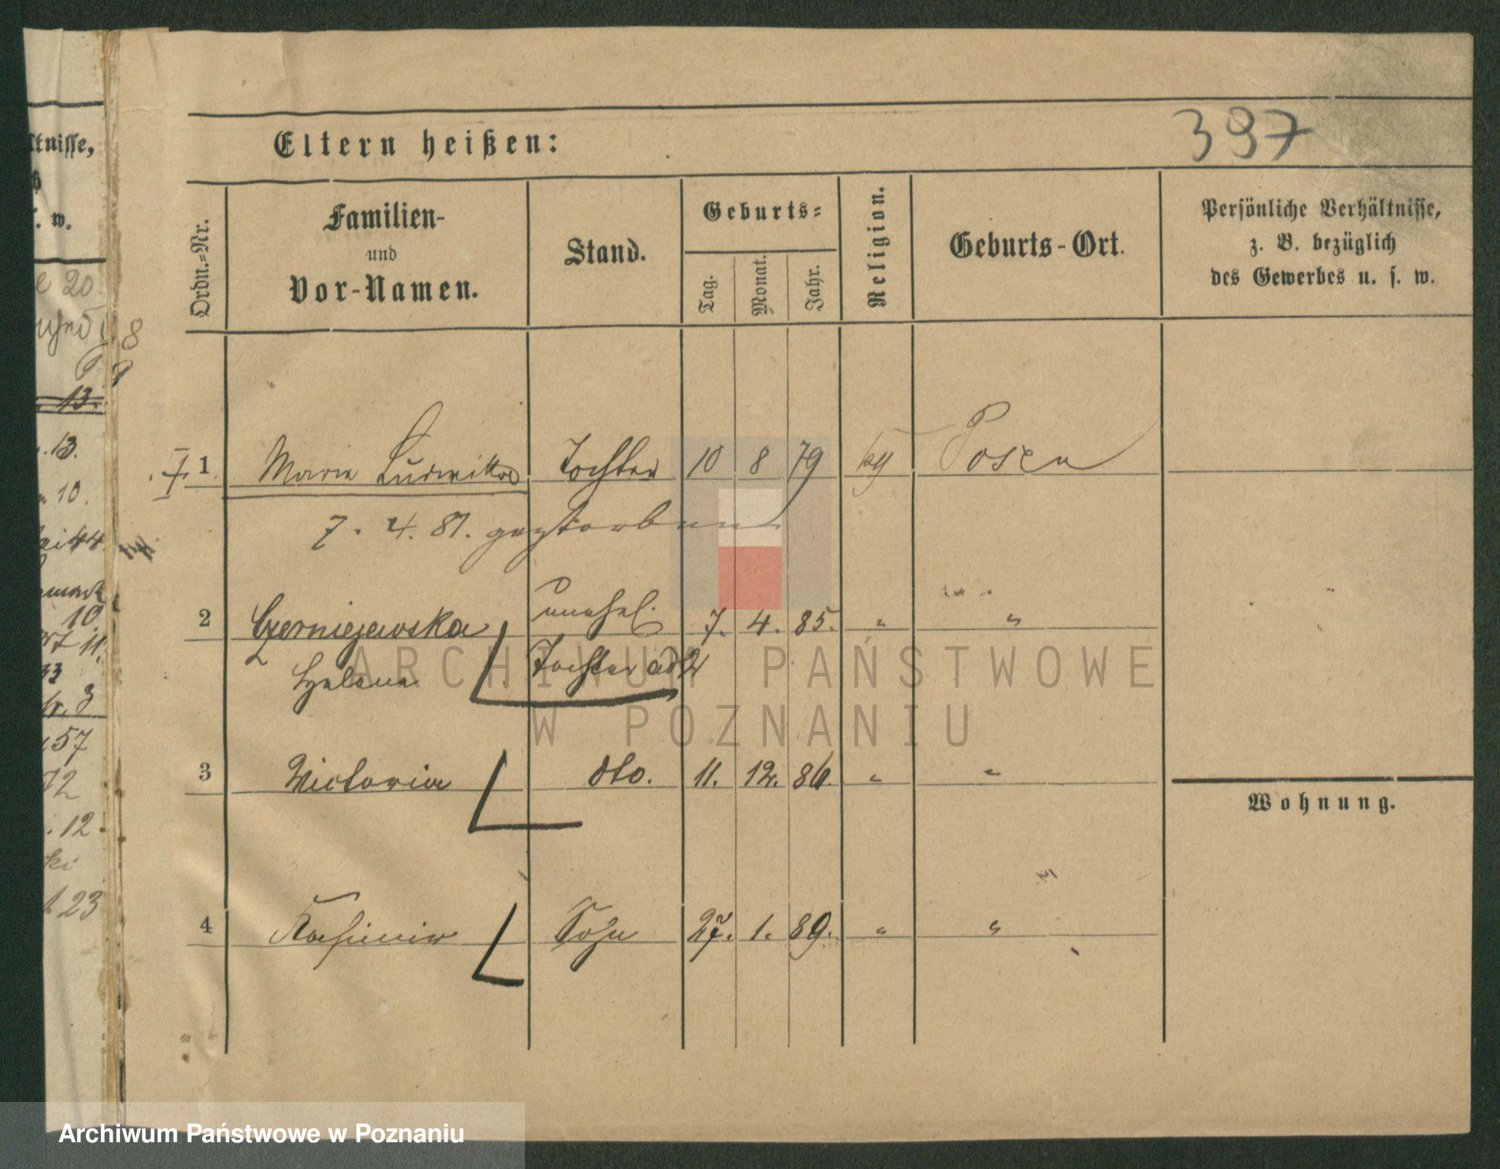 Eltern heißen:
397
Ordn.-Nr.
Familien-
und
Vor-Namen.
Stand.
Geburts-
Tag.
Monat.
Jahr.
Religion.
Geburts-Ort.
Persönliche Verhältnisse,
z. B. bezüglich
des Gewerbes u. s. w.
1 Maria Ludwika Tochter 10 8 79 Posen
7. 4. 81. gestorben
unehel.
2 Czerniejewska 7. 4. 85. " "
Helena Tochter ad 2
3 Victoria dto. 11. 12. 86. " "
Wohnung.
4 Kasimir Sohn 27. 1. 89. " "
tnisse,
. w.
20
8
13.
13.
10.
44
10.
11.
33
3
57
72
12
ki
23
ARCHIWUM PAŃSTWOWE
W POZNANIU
Archiwum Państwowe w Poznaniu